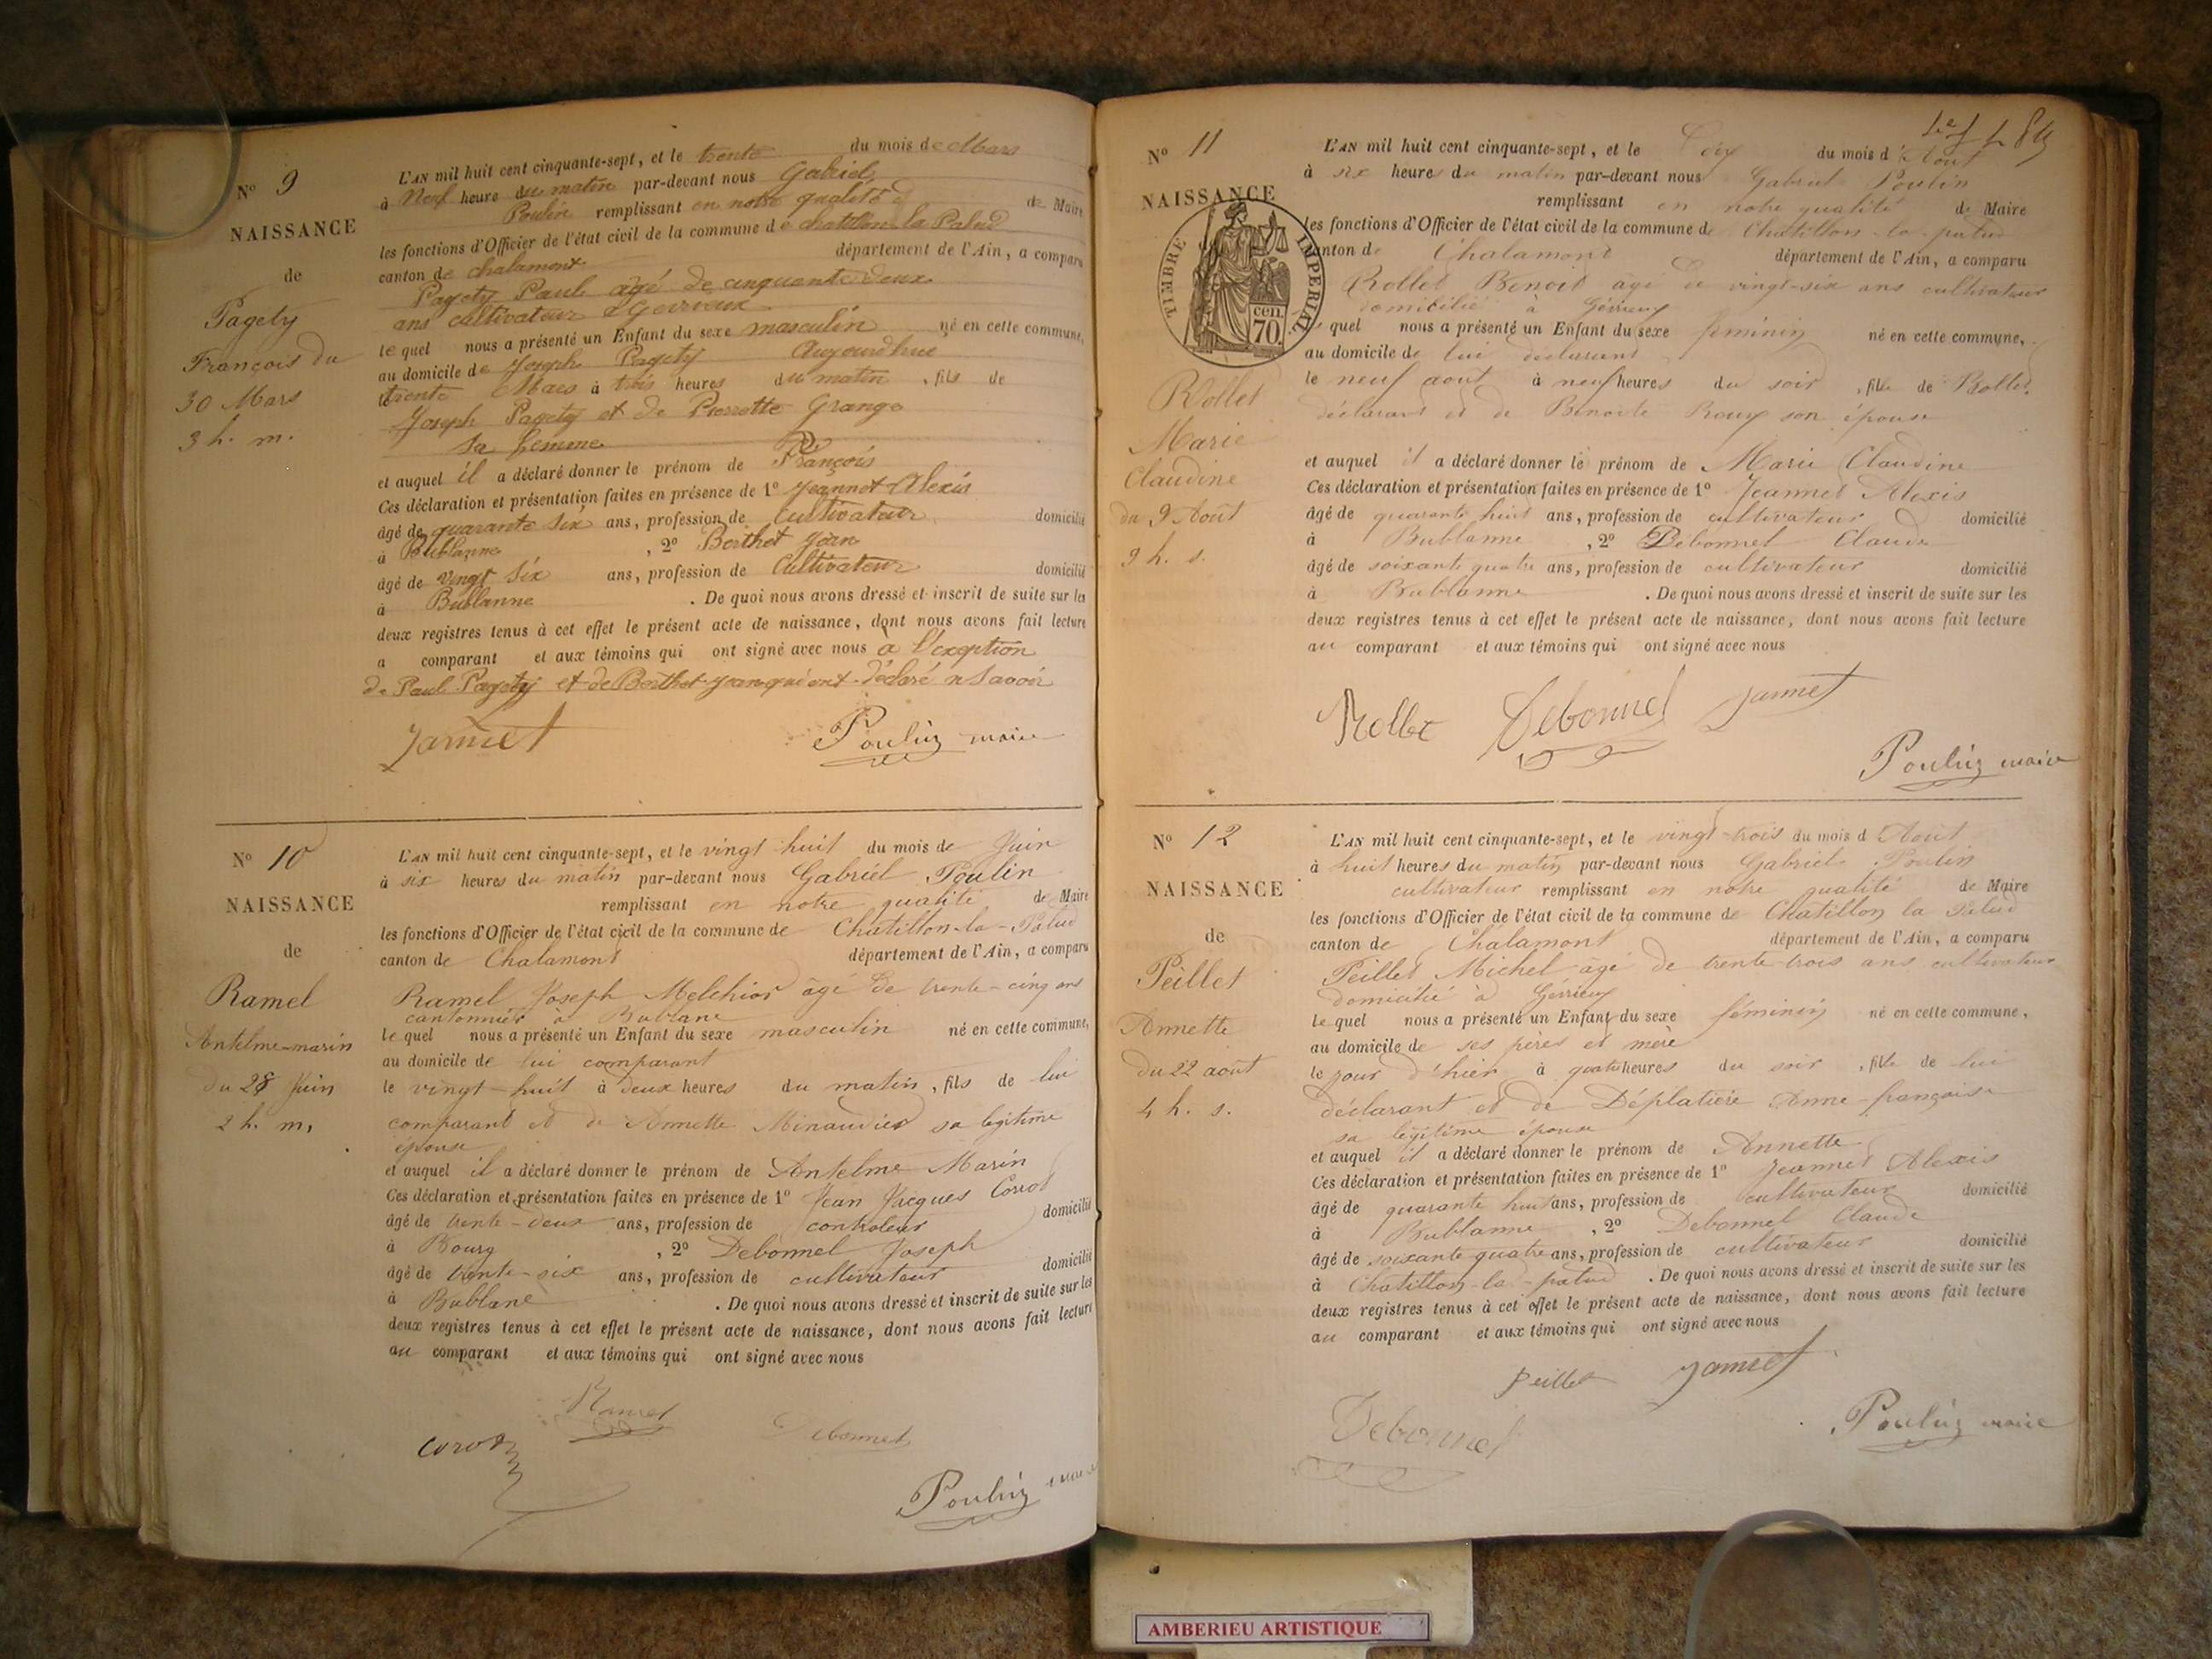 N° 9
NAISSANCE
de
Pagety
François du
30 Mars
3 h. m.
L'AN mil huit cent cinquante-sept, et le trente du mois de Mars
à Neuf heure du matin par-devant nous Gabriel
Poulin remplissant en notre qualité de Maire
les fonctions d'Officier de l'état civil de la commune de chatillon la Palud
canton de chalamont département de l'Ain, a comparu
Pagety Paul agé de cinquante deux
ans cultivateur à Gevrieux
le quel nous a présenté un Enfant du sexe masculin né en cette commune,
au domicile de Joseph Pagety Aujourdhui
trente Mars à trois heures du matin, fils de
Joseph Pagety et de Pierrette Grange
sa femme
et auquel il a déclaré donner le prénom de François
Ces déclaration et présentation faites en présence de 1° Jeannet Alexis
âgé de quarante six ans, profession de Cultivateur domicilié
à Bublanne, 2° Berthet Jean
âgé de vingt six ans, profession de Cultivateur domicilié
à Bublanne. De quoi nous avons dressé et inscrit de suite sur les
deux registres tenus à cet effet le présent acte de naissance, dont nous avons fait lecture
a comparant et aux témoins qui ont signé avec nous à l'exeption
de Paul Pagety et de Berthet jean qui ont déclaré n Savoir
Jannet Poulin maire
N° 10
NAISSANCE
de
Ramel
Antelme-marin
du 28 Juin
2 h. m.
L'AN mil huit cent cinquante-sept, et le vingt huit du mois de Juin
à six heures du matin par-devant nous Gabriel Poulin
remplissant en notre qualité de Maire
les fonctions d'Officier de l'état civil de la commune de Chatillon-la-Palud
canton de Chalamont département de l'Ain, a comparu
Ramel Joseph Melchior âgé de trente-cinq ans
cantonnier à Bublane
le quel nous a présenté un Enfant du sexe masculin né en cette commune,
au domicile de lui comparant
le vingt-huit à deux heures du matin, fils de lui
comparant et de Annette Minaudier sa légitime
épouse
et auquel il a déclaré donner le prénom de Antelme Marin
Ces déclaration et présentation faites en présence de 1° Jean Jacques Corrot
âgé de trente-deux ans, profession de controleur domicilié
à Bourg, 2° Debonnel Joseph
âgé de trente-six ans, profession de cultivateur domicilié
à Bublane. De quoi nous avons dressé et inscrit de suite sur les
deux registres tenus à cet effet le présent acte de naissance, dont nous avons fait lecture
au comparant et aux témoins qui ont signé avec nous
Ramel
Corot Debonnel
Poulin maire
N° 11
NAISSANCE
TIMBRE IMPERIAL
cen.
70.
Rollet
Marie
Claudine
du 9 Août
9 h. s.
L'AN mil huit cent cinquante-sept, et le dix du mois d'Août
à six heures du matin par-devant nous Gabriel Poulin
remplissant en notre qualité de Maire
les fonctions d'Officier de l'état civil de la commune de Chatillon-la-palud
canton de Chalamont département de l'Ain, a comparu
Rollet Benoit âgé de vingt-six ans cultivateur
domicilié à Gévrieux
quel nous a présenté un Enfant du sexe féminin né en cette commune,
au domicile de lui déclarant
le neuf aout à neuf heures du soir, fille de Rollet
déclarant et de Benoite Roux son épouse
et auquel il a déclaré donner le prénom de Marie Claudine
Ces déclaration et présentation faites en présence de 1° Jeannet Alexis
âgé de quarante huit ans, profession de cultivateur domicilié
à Bublanne, 2° Debonnel Claude
âgé de soixante quatre ans, profession de cultivateur domicilié
à Bublanne. De quoi nous avons dressé et inscrit de suite sur les
deux registres tenus à cet effet le présent acte de naissance, dont nous avons fait lecture
au comparant et aux témoins qui ont signé avec nous
Rollet Debonnel Jannet
Poulin maire
N° 12
NAISSANCE
de
Peillet
Annette
du 22 août
4 h. s.
L'AN mil huit cent cinquante-sept, et le vingt-trois du mois d Août
à huit heures du matin par-devant nous Gabriel Poulin
cultivateur remplissant en notre qualité de Maire
les fonctions d'Officier de l'état civil de la commune de Chatillon la Palud
canton de Chalamont département de l'Ain, a comparu
Peillet Michel âgé de trente-trois ans cultivateur
domicilié à Gévrieux
le quel nous a présenté un Enfant du sexe féminin né en cette commune,
au domicile de ses père et mère
le jour d'hier à quatre heures du soir, fille de lui
déclarant et de Déplatière Anne françoise
sa légitime épouse
et auquel il a déclaré donner le prénom de Annette
Ces déclaration et présentation faites en présence de 1° Jeannet Alexis
âgé de quarante huit ans, profession de cultivateur domicilié
à Bublanne, 2° Debonnel Claude
âgé de soixante quatre ans, profession de cultivateur domicilié
à Chatillon-la-palud. De quoi nous avons dressé et inscrit de suite sur les
deux registres tenus à cet effet le présent acte de naissance, dont nous avons fait lecture
au comparant et aux témoins qui ont signé avec nous
Peillet Jannet
Debonnel Poulin maire
AMBERIEU ARTISTIQUE